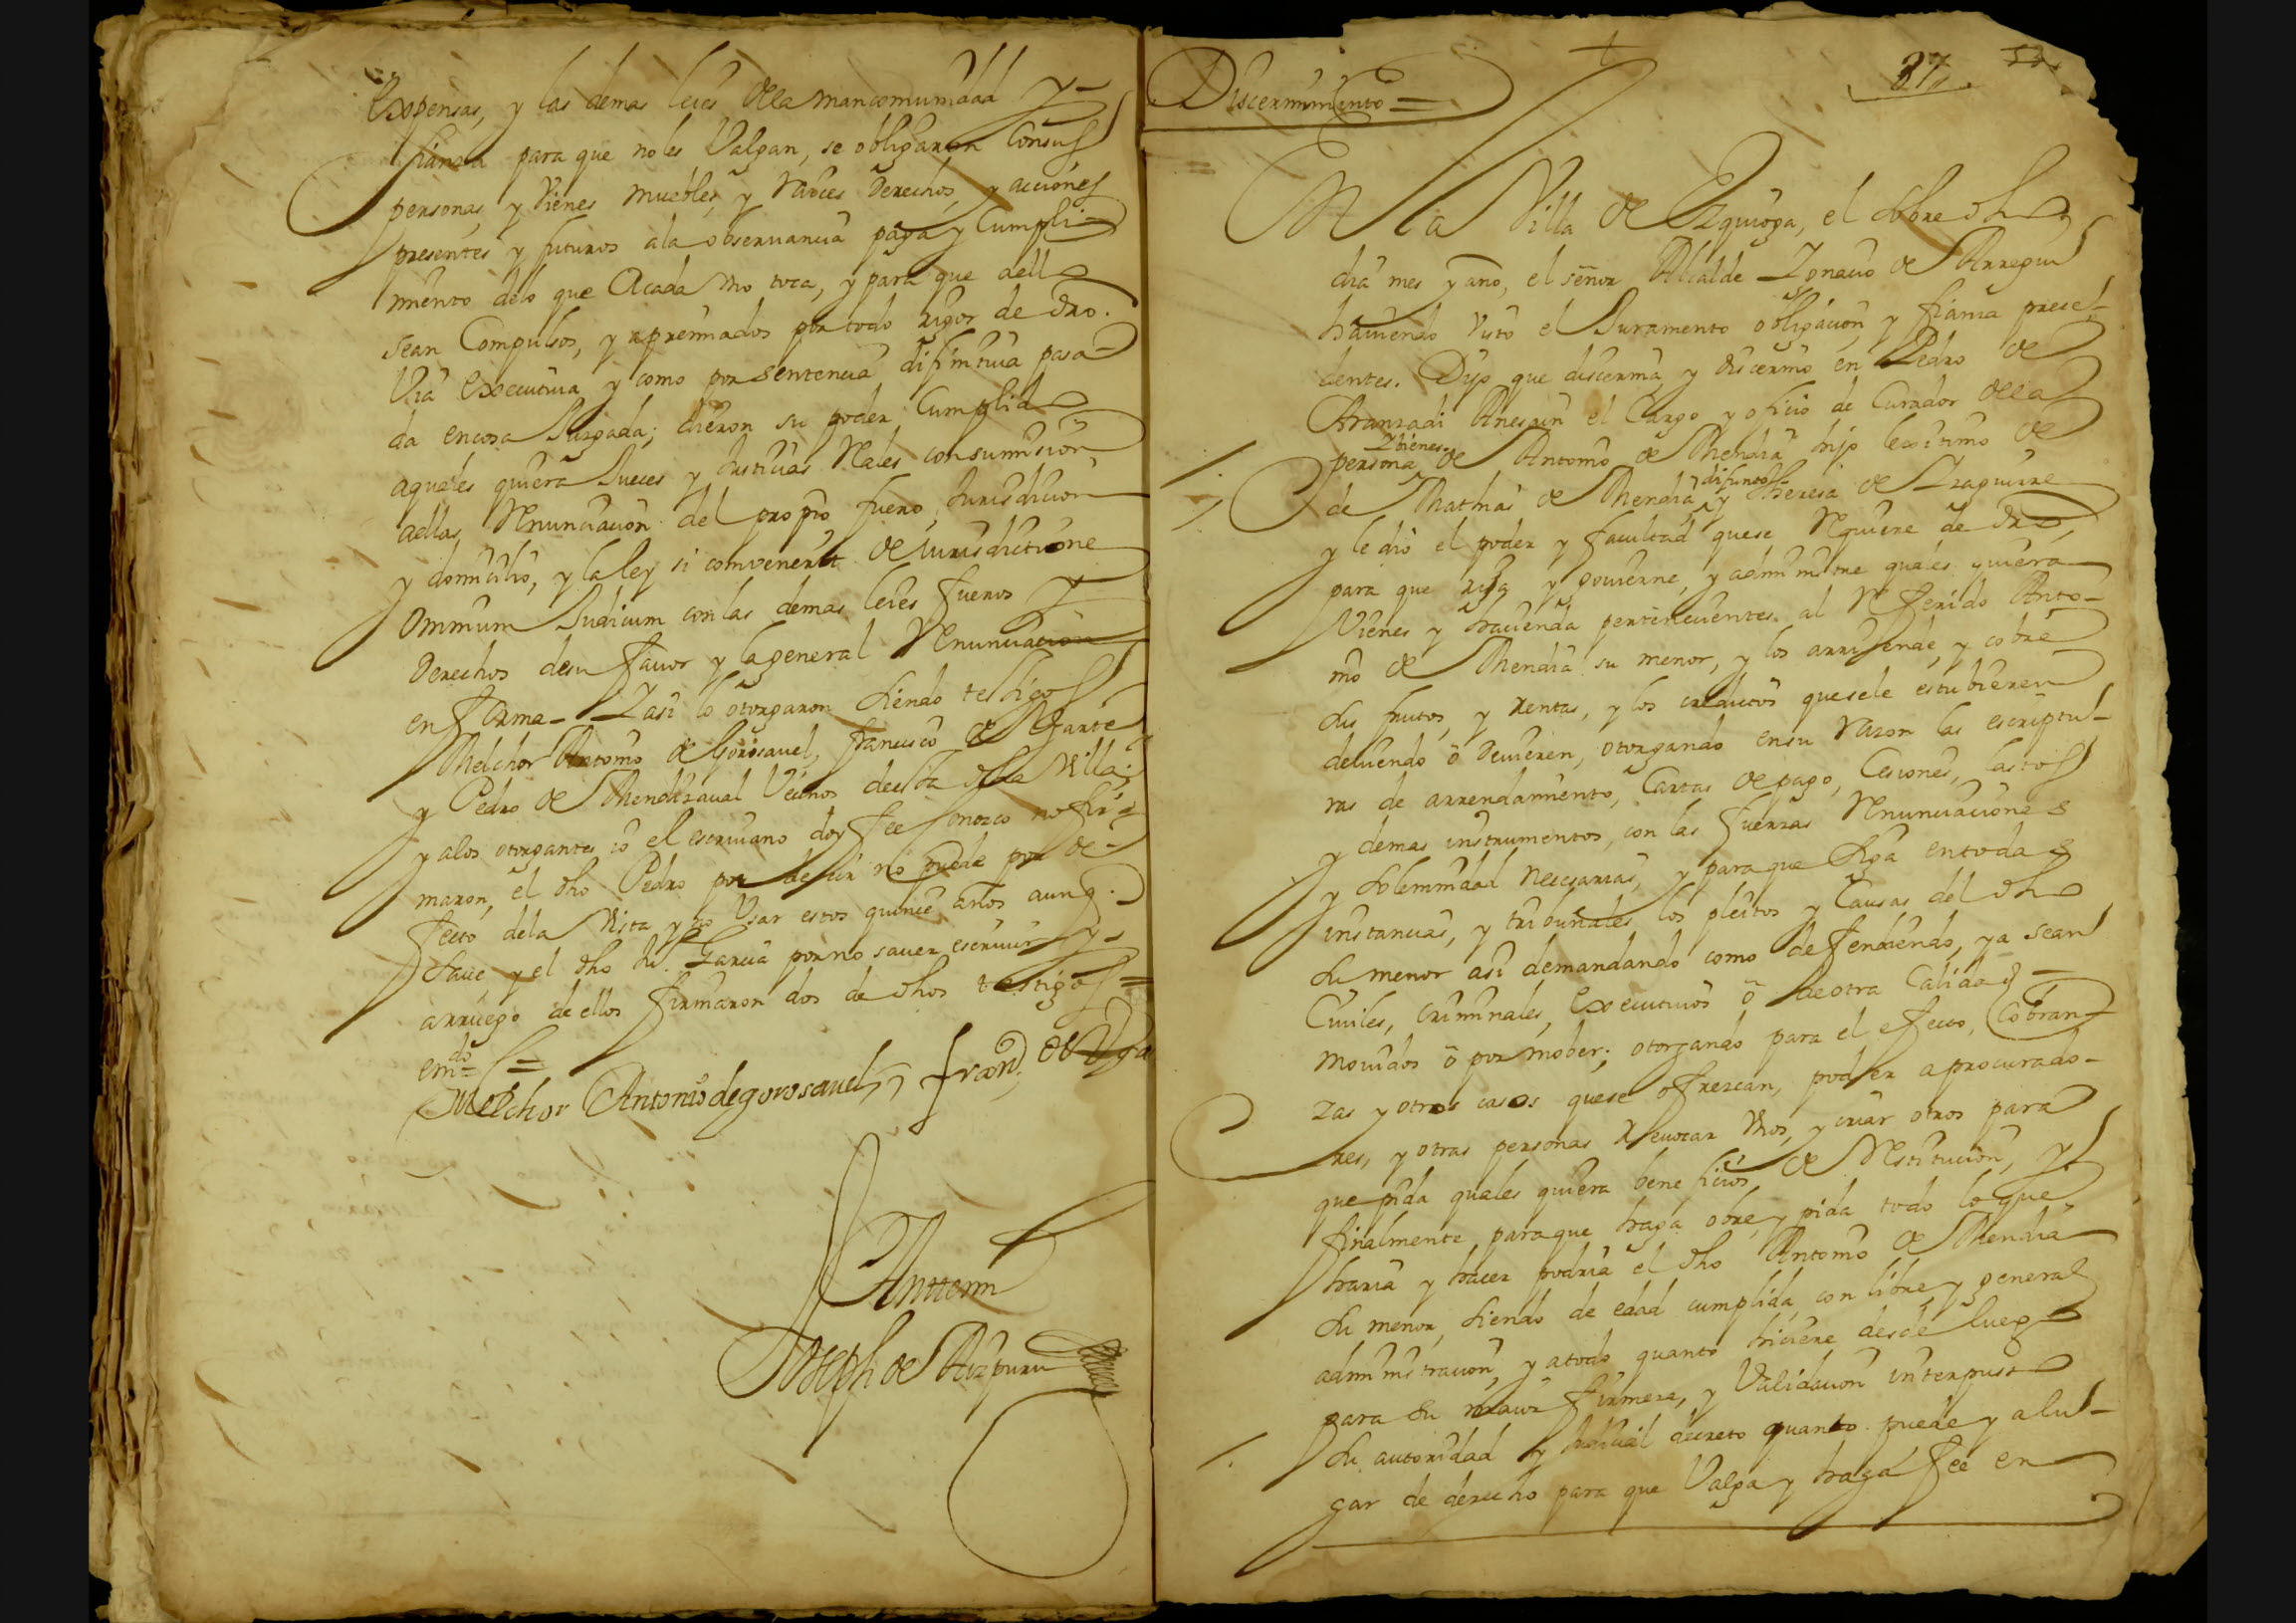 Expensas, y las demas leies dela mancomunidad y
fianza para que no les Valgan, se obligaron Consus
personas, y Vienes muebles, y raices Derechos, y acciones
presentes y futuros ala observancia paga y Cumpli-
miento delo que Acada uno toca, y para que aello
sean Compulsos, y apremiados por todo rigor de dro.
Via Executiva y como por sentencia difinitiva pasa-
da encosa Juzgada; dieron su poder Cumplido
aquales quiera Jueces y Justicias Reales consumision
aellas, Renunciacion del propio fuero, Jurisdicion
y domicilio, y la ley si convenerit de Jurisdictione
Omnium Judicum con las demas leies fueros y
Derechos desu favor y la general Renunciacion
en forma - Y asi lo otorgaron siendo testigos
Melchor Antonio de Gorosavel, francisco de Ugarte
y Pedro de Mendizaval Vecinos desta dha Villa;
y alos otorgantes io el escrivano doy fee conozco no fir-
maron, el dho Pedro por decir no puede por de-
fecto dela Vista y no Usar estos quince años aunq.
save y el dho Garcia por no saver escrivir y
arruego de ellos firmaron dos de dhos testigos =
emdo =
Melchor Antonio de gorosavel fran de Uga
Antemi
Joseph de Aizpuru
Discernimiento =
37 52
En la Villa de Ezquioga, el sobre dho
dia mes y año, el señor Alcalde Ygnacio de Arregui
haviendo visto el Juramento obligacion, y fianza prese-
dentes. Dijo que discernia, y discernio en Pedro de
Aranzadi Anesagui el Cargo y oficio de Curador dela
persona Ybienes de Antonio de Mendia hijo lexitimo de
de Mathias de Mendia difunto y Theresa de Yzaguirre
y le dio el poder y facultad quese Requiere de dro,
para que rija y govierne, y administre quales quiera
Vienes y hacienda pertenecientes al Referido Anto-
nio de Mendia su menor, y los arriende, y cobre
sus frutos, y rentas, y los creditos quesele estubieren
deviendo o Devieren, otorgando ensu razon las escriptu-
ras de arrendamiento, Cartas de pago, Cesiones, lastos
y demas instrumentos, con las fuerzas Renunciaciones
y solemnidad necesarias, y paraque siga entodas
instancias, y tribunales los pleitos y Causas del dho
su menor asi demandando como defendiendo, ya sean
Civiles, criminales, Executivos o de otra Calidad
movidos o por mober; otorgando para el efecto, Cobran-
zas y otros casos quese ofrezcan, poder a procurado-
res, y otras personas Revocar unos, y criar otros para
que pida quales quiera beneficios de Restitucion, y
finalmente paraque haga obre y pida todo lo que
haria y hacer podria el dho Antonio de Mendia
su menor, siendo de edad cumplida, con libre y general
administracion, y atodo quanto hiciere desde luego
para su maior firmeza, y Validacion interpuso
su autoridad y Judicial decreto quanto puede y alu-
gar de derecho para que Valga y haga fee en